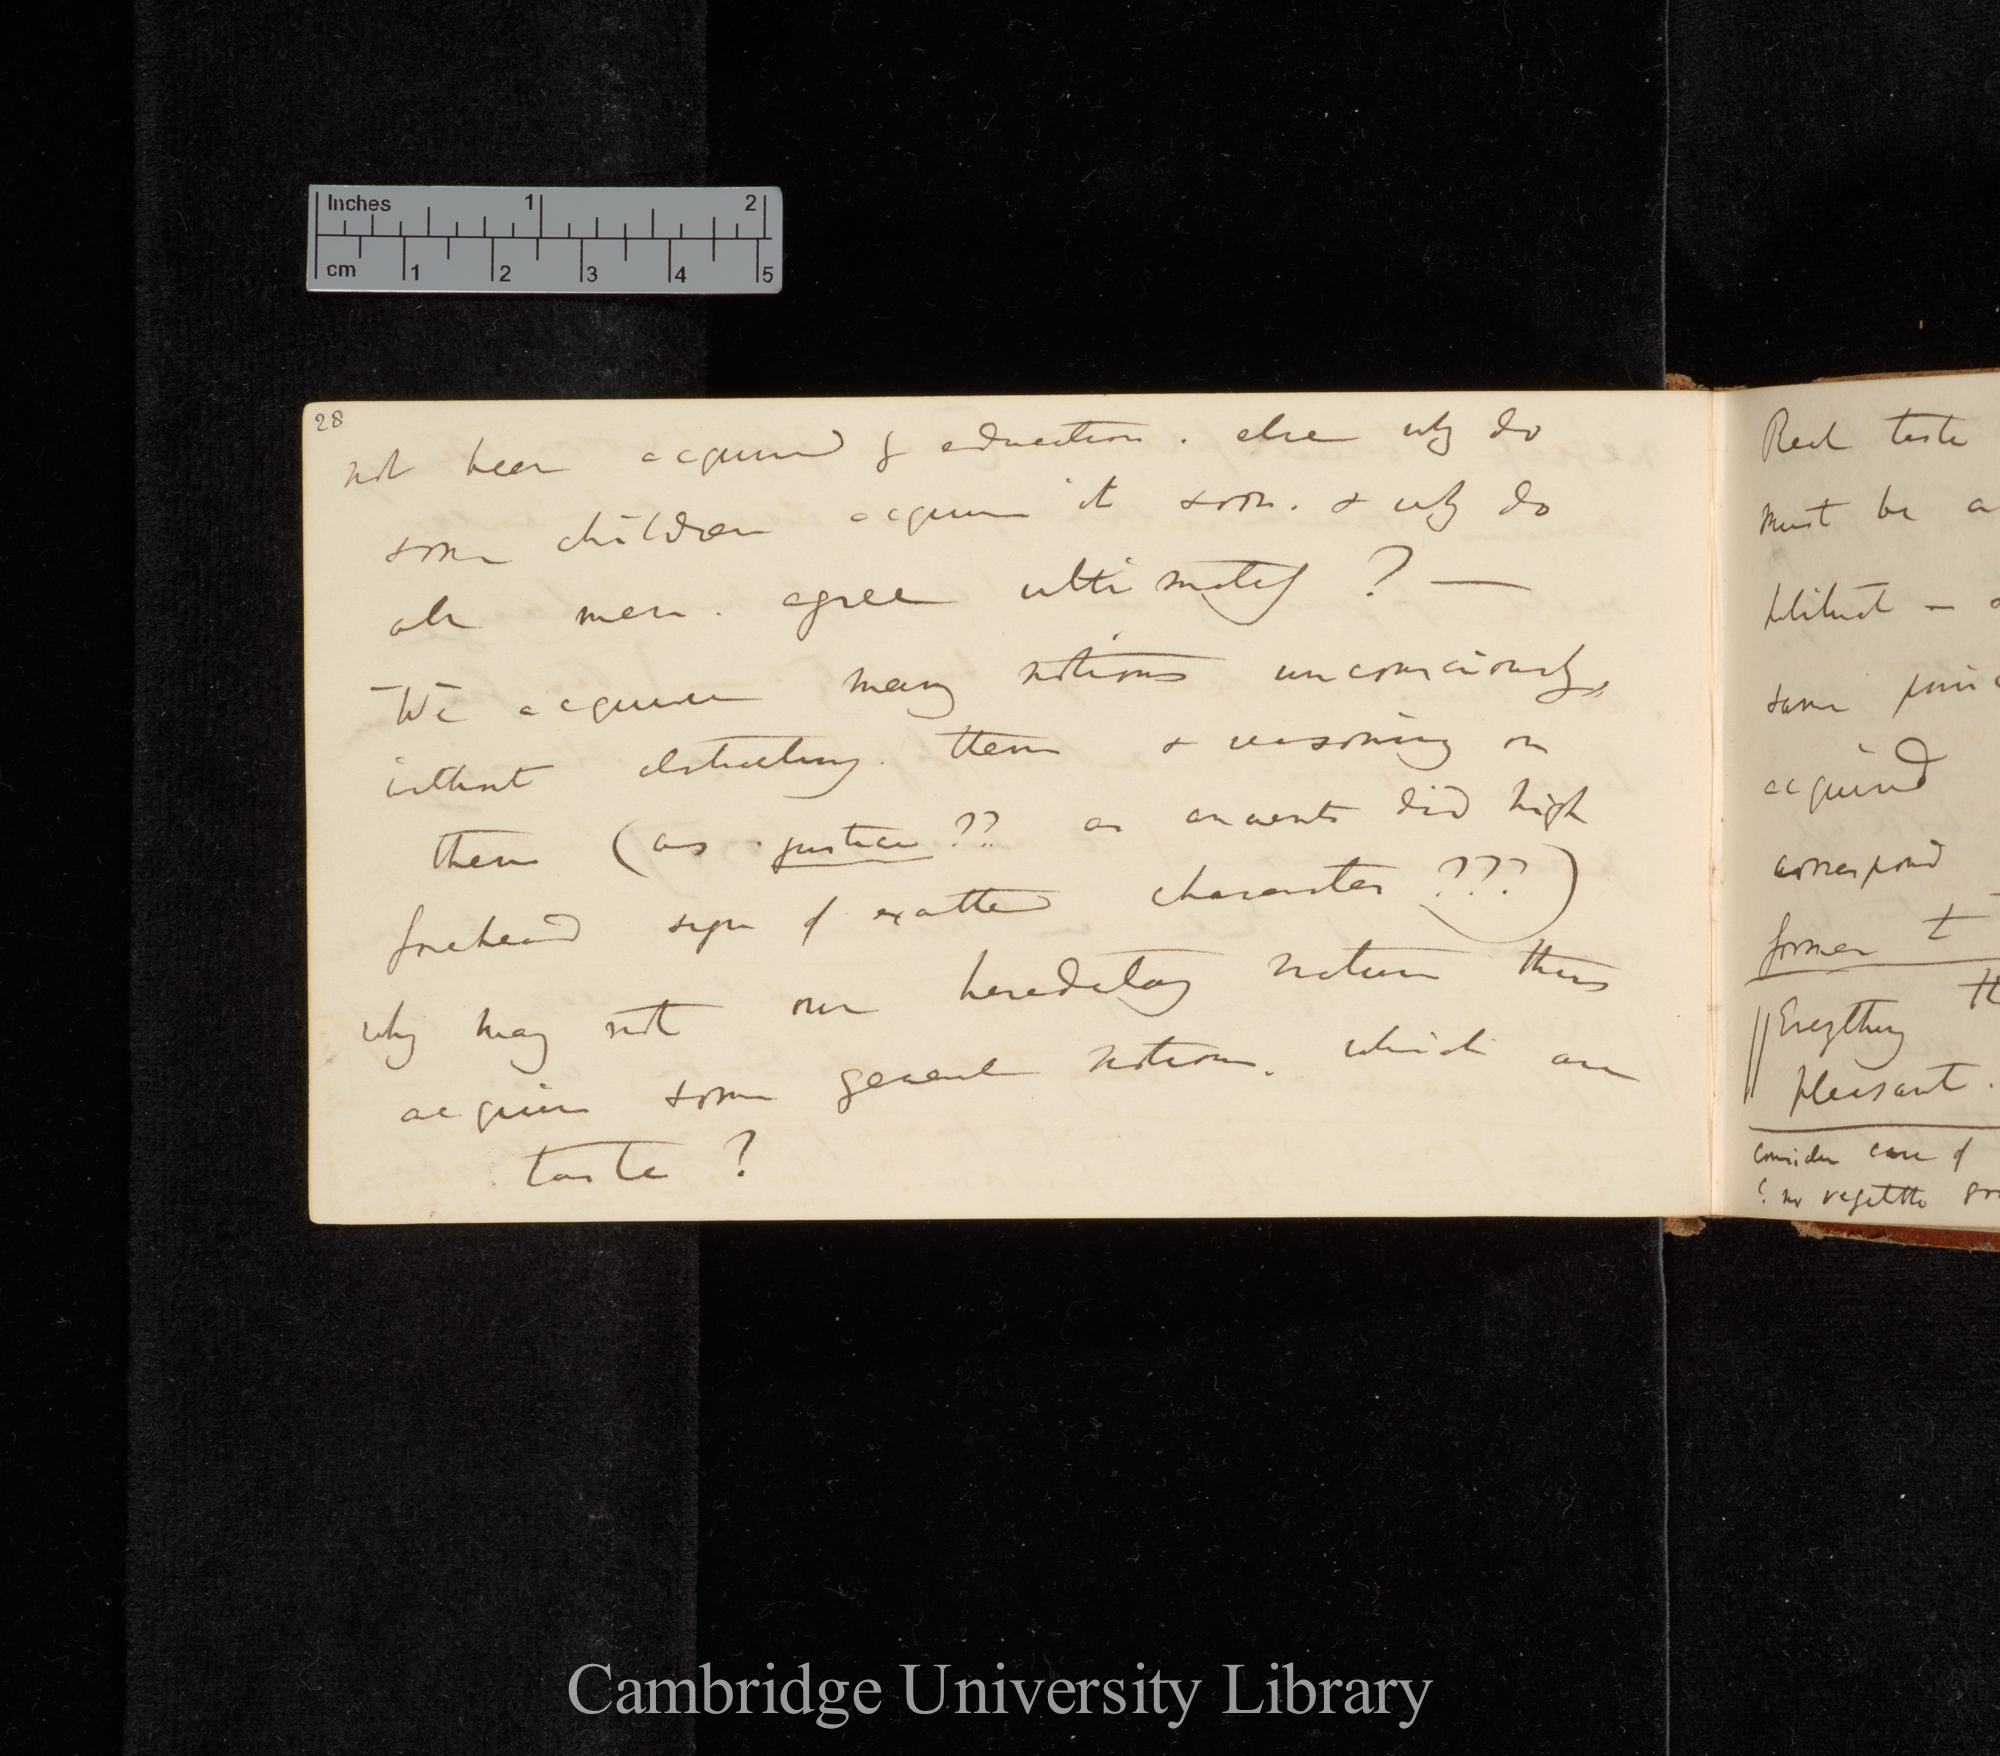 Inches 1 2
cm 1 2 3 4 5
28
not been acquired by education. else why do
some children acquire it soon. & why do
all men. agree ultimately? —
We acquire many notions unconsciously,
without abstracting them & reasoning on
them (as justice?? as ancients did high
forehead sign of exalted character???)
why may not our hereditary nature thus
acquire some general notions. which are
taste?
Real taste
must be
same
acquired
correspond
former
Everything
pleasant.
consider case of
? no vegetable
Cambridge University Library